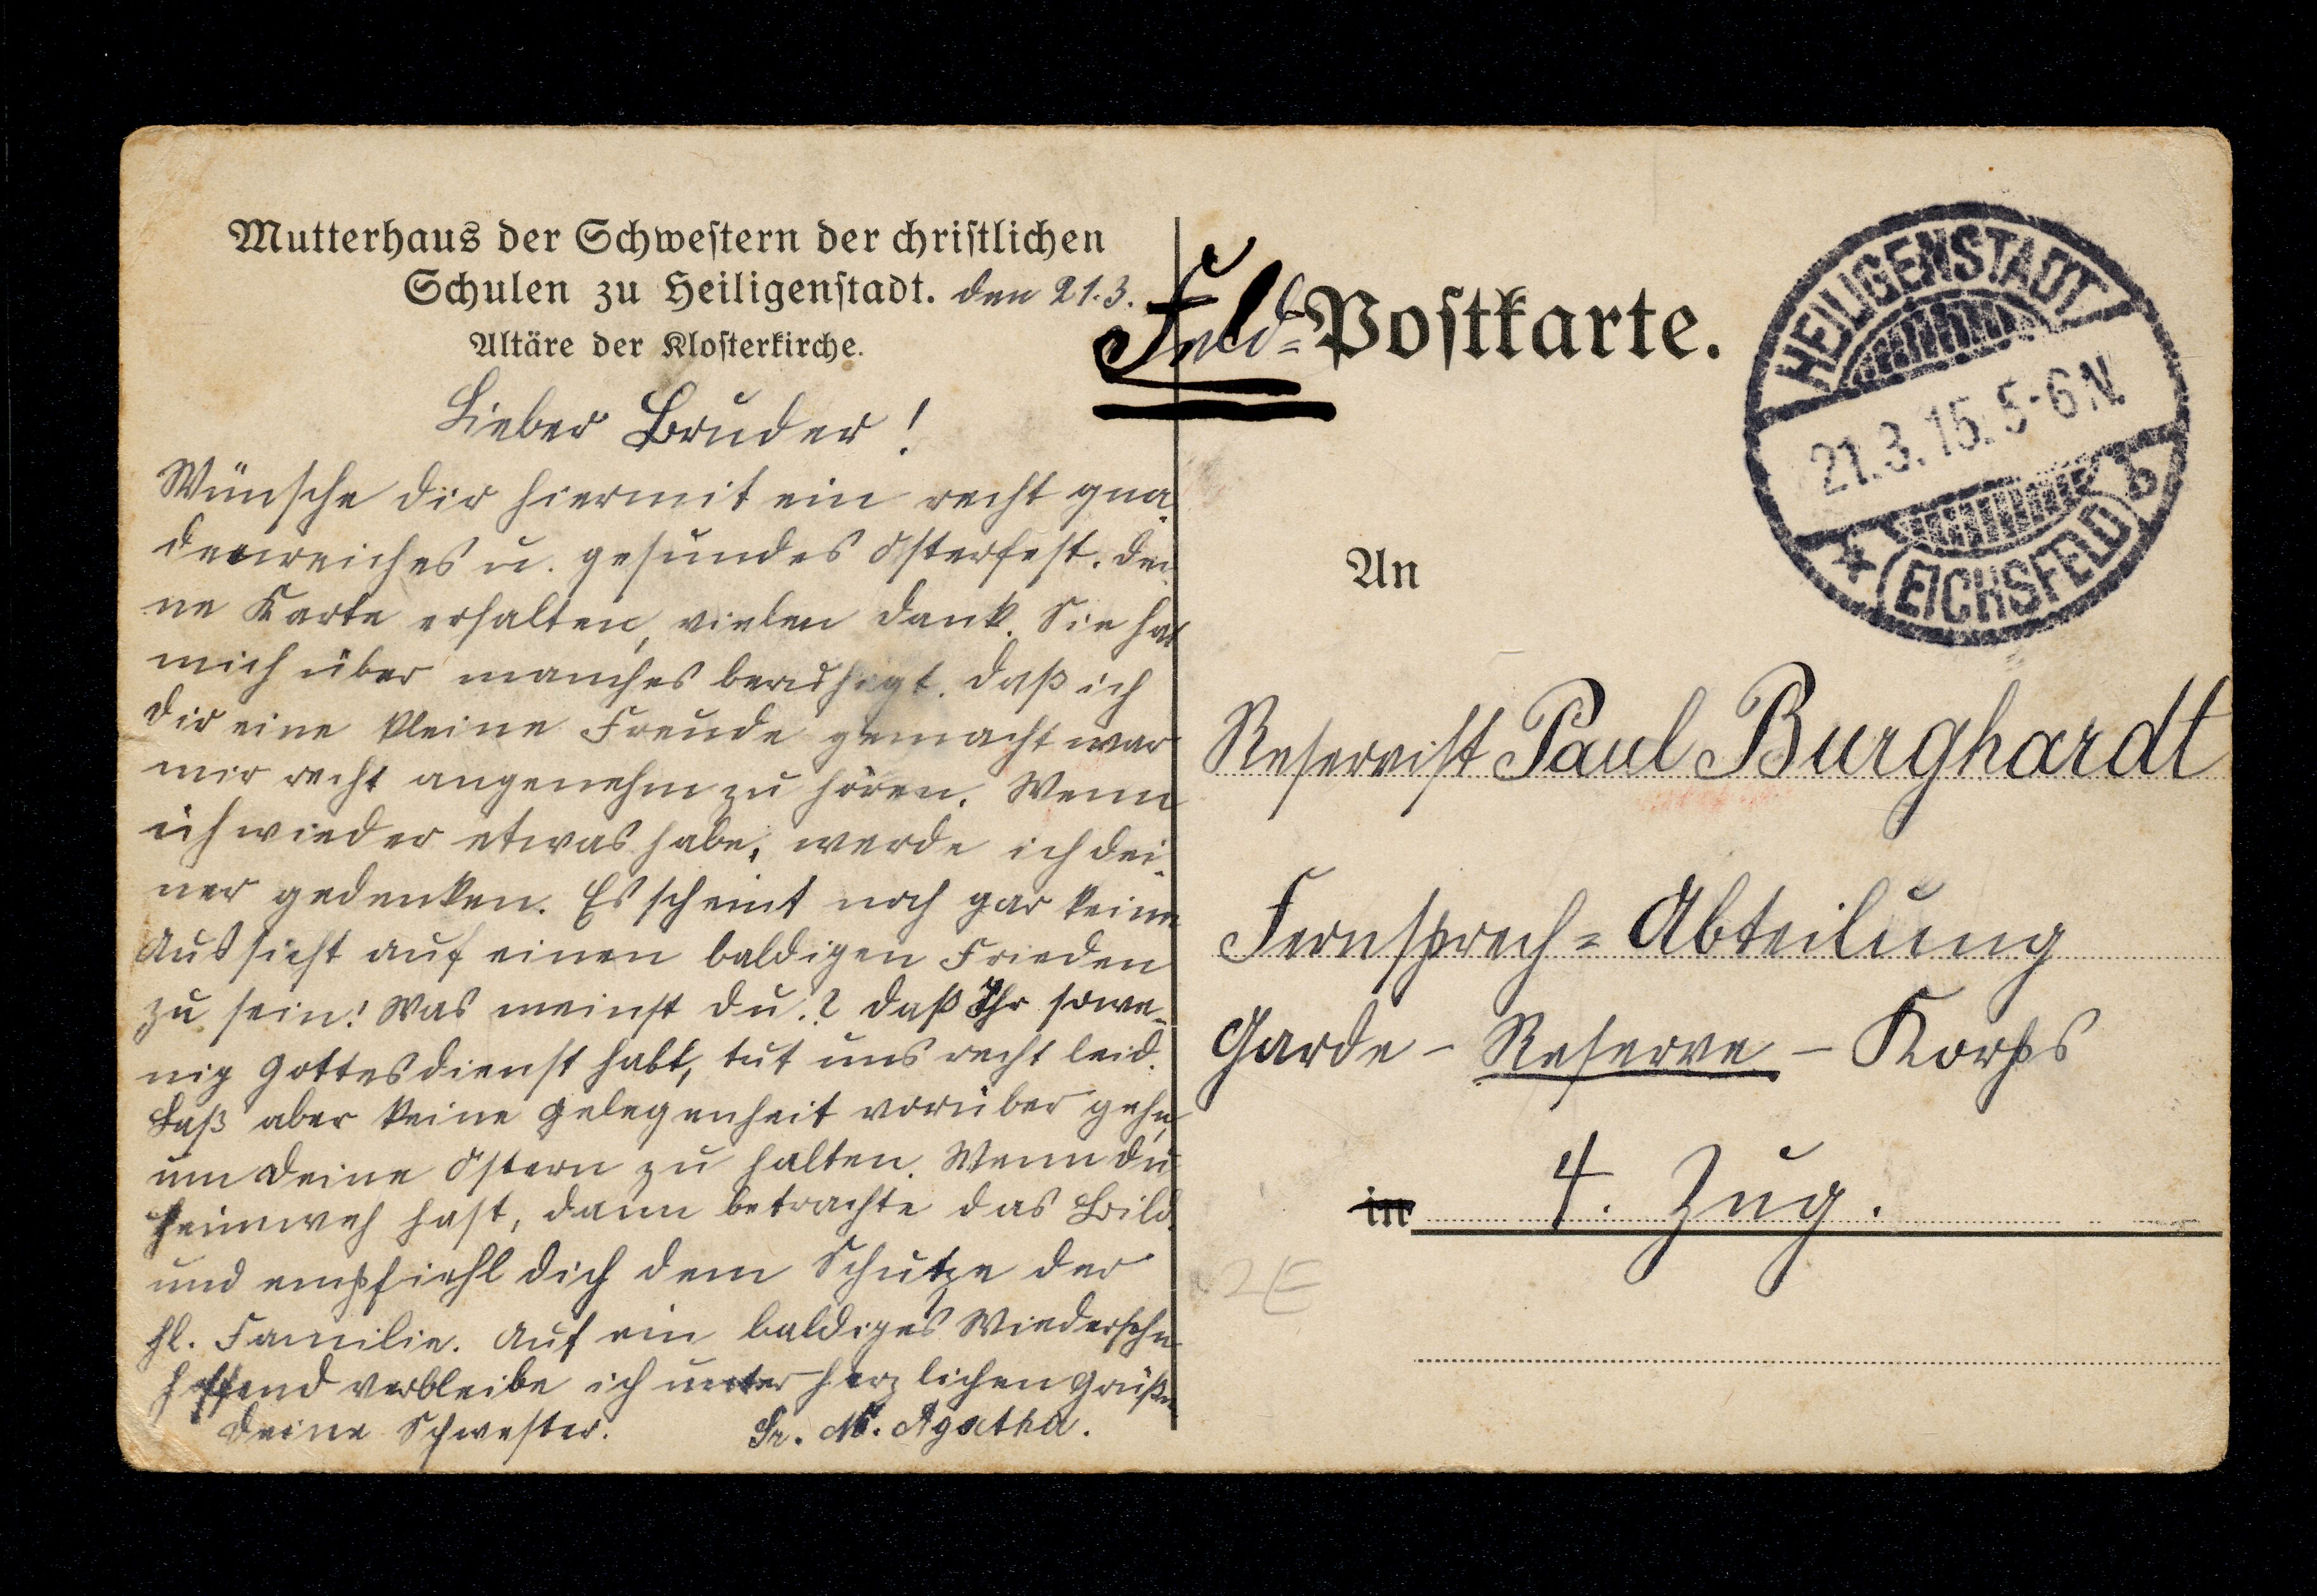 Mutterhaus der Schwestern der christlichen
Schulen zu Heiligenstadt. den 21.3.
Altäre der Klosterkirche.
Lieber Bruder!
Wünsche dir hiermit ein recht gna-
denreiches u. gesundes Osterfest. Dei-
ne Karte erhalten, vielen Dank. Sie hat
mich über manches beruhigt. Daß ich
dir eine kleine Freude gemacht war
mir recht angenehm zu hören. Wenn
ich wieder etwas habe, werde ich dei-
ner gedenken. Es scheint noch gar keine
Aussicht auf einen baldigen Frieden
zu sein! Was meinst du? Daß Ihr sowe-
nig Gottesdienst habt, tut uns recht leid.
Laß aber keine Gelegenheit vorüber gehn,
um deine Ostern zu halten. Wenn du
Heimweh hast, dann betrachte das Bild
und empfiehl dich dem Schutze der
hl. Familie. Auf ein baldiges Wiedersehn
hoffend verbleibe ich unter herzlichen Grüßen
deine Schwester. Sr. M. Agatha.
Feld-Postkarte.
HEILIGENSTADT
21.3.15. 5-6 N.
* (EICHSFELD) b
An
Reservist Paul Burghardt
Fernsprech-Abteilung
Garde-Reserve-Korps
in 4. Zug.